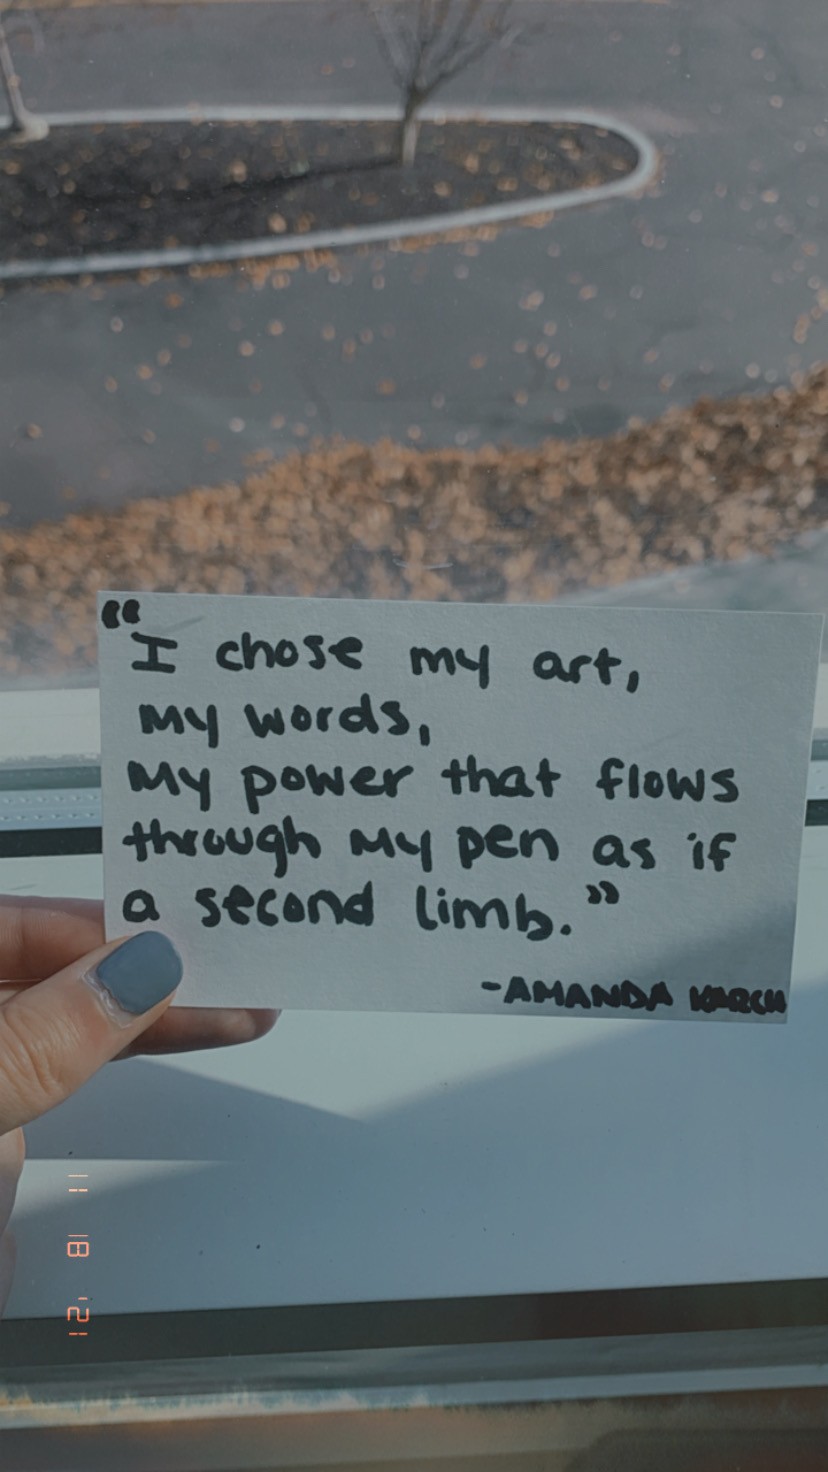 "I chose my art,
my words,
my power that flows
through my pen as if
a second limb."
-AMANDA KARCH
11 18 '21